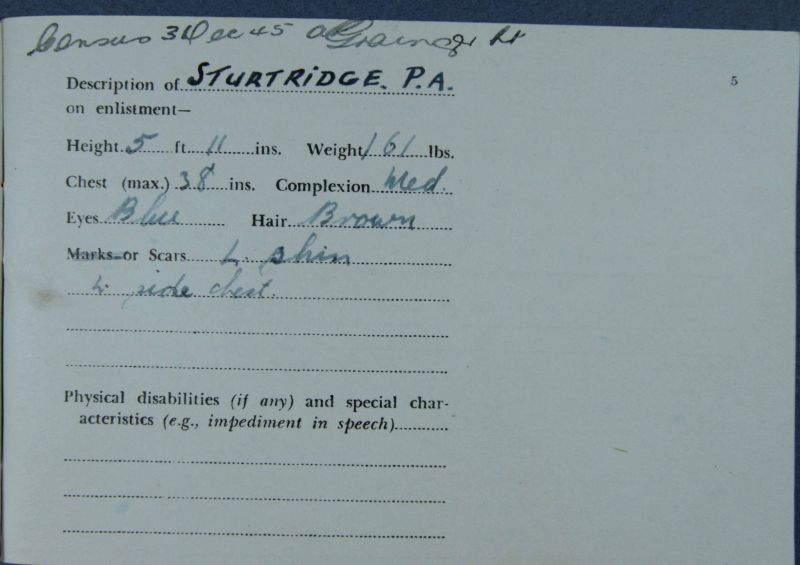 Census 31 Dec 45 Lt
5
Description of STURTRIDGE. P.A.
on enlistment—
Height 5 ft 11 ins. Weight 161 lbs.
Chest (max.) 38 ins. Complexion Med.
Eyes Blue Hair Brown
Marks or Scars L. shin
L. side chest.
Physical disabilities (if any) and special char-
acteristics (e.g., impediment in speech)